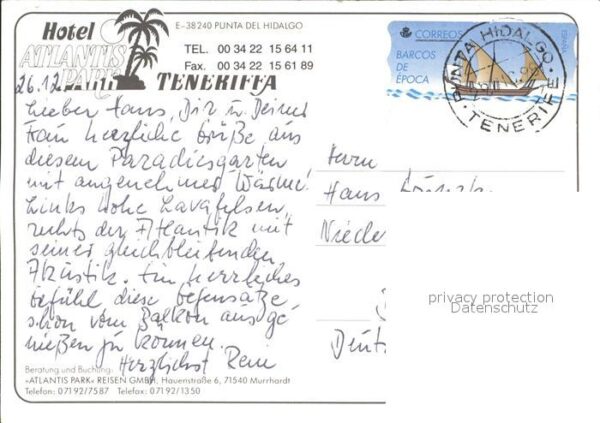 Hotel
ATLANTIS
PARK
TENERIFFA
E-38240 PUNTA DEL HIDALGO
TEL. 00 34 22 15 64 11
Fax. 00 34 22 15 61 89
CORREOS
ESPAÑA
BARCOS
DE
EPOCA
PUNTA HIDALGO
TENERIFE
26.12
Lieber Hans, Dir u. Deiner
Frau herzliche Grüße aus
diesem Paradiesgarten
mit angenehmer Wärme!
Links hohe Lavafelsen,
rechts der Atlantik mit
seiner gleichbleibenden
Akustik. Ein herrliches
Gefühl diese Gegensätze
schon vom Balkon aus ge
nießen zu können.
Herzlichst
Herrn
Hans
Niede
Deut
privacy protection
Datenschutz
Beratung und Buchung:
»ATLANTIS PARK« REISEN GMBH, Hauenstraße 6, 71540 Murrhardt
Telefon: 071 92/75 87 Telefax: 071 92/13 50